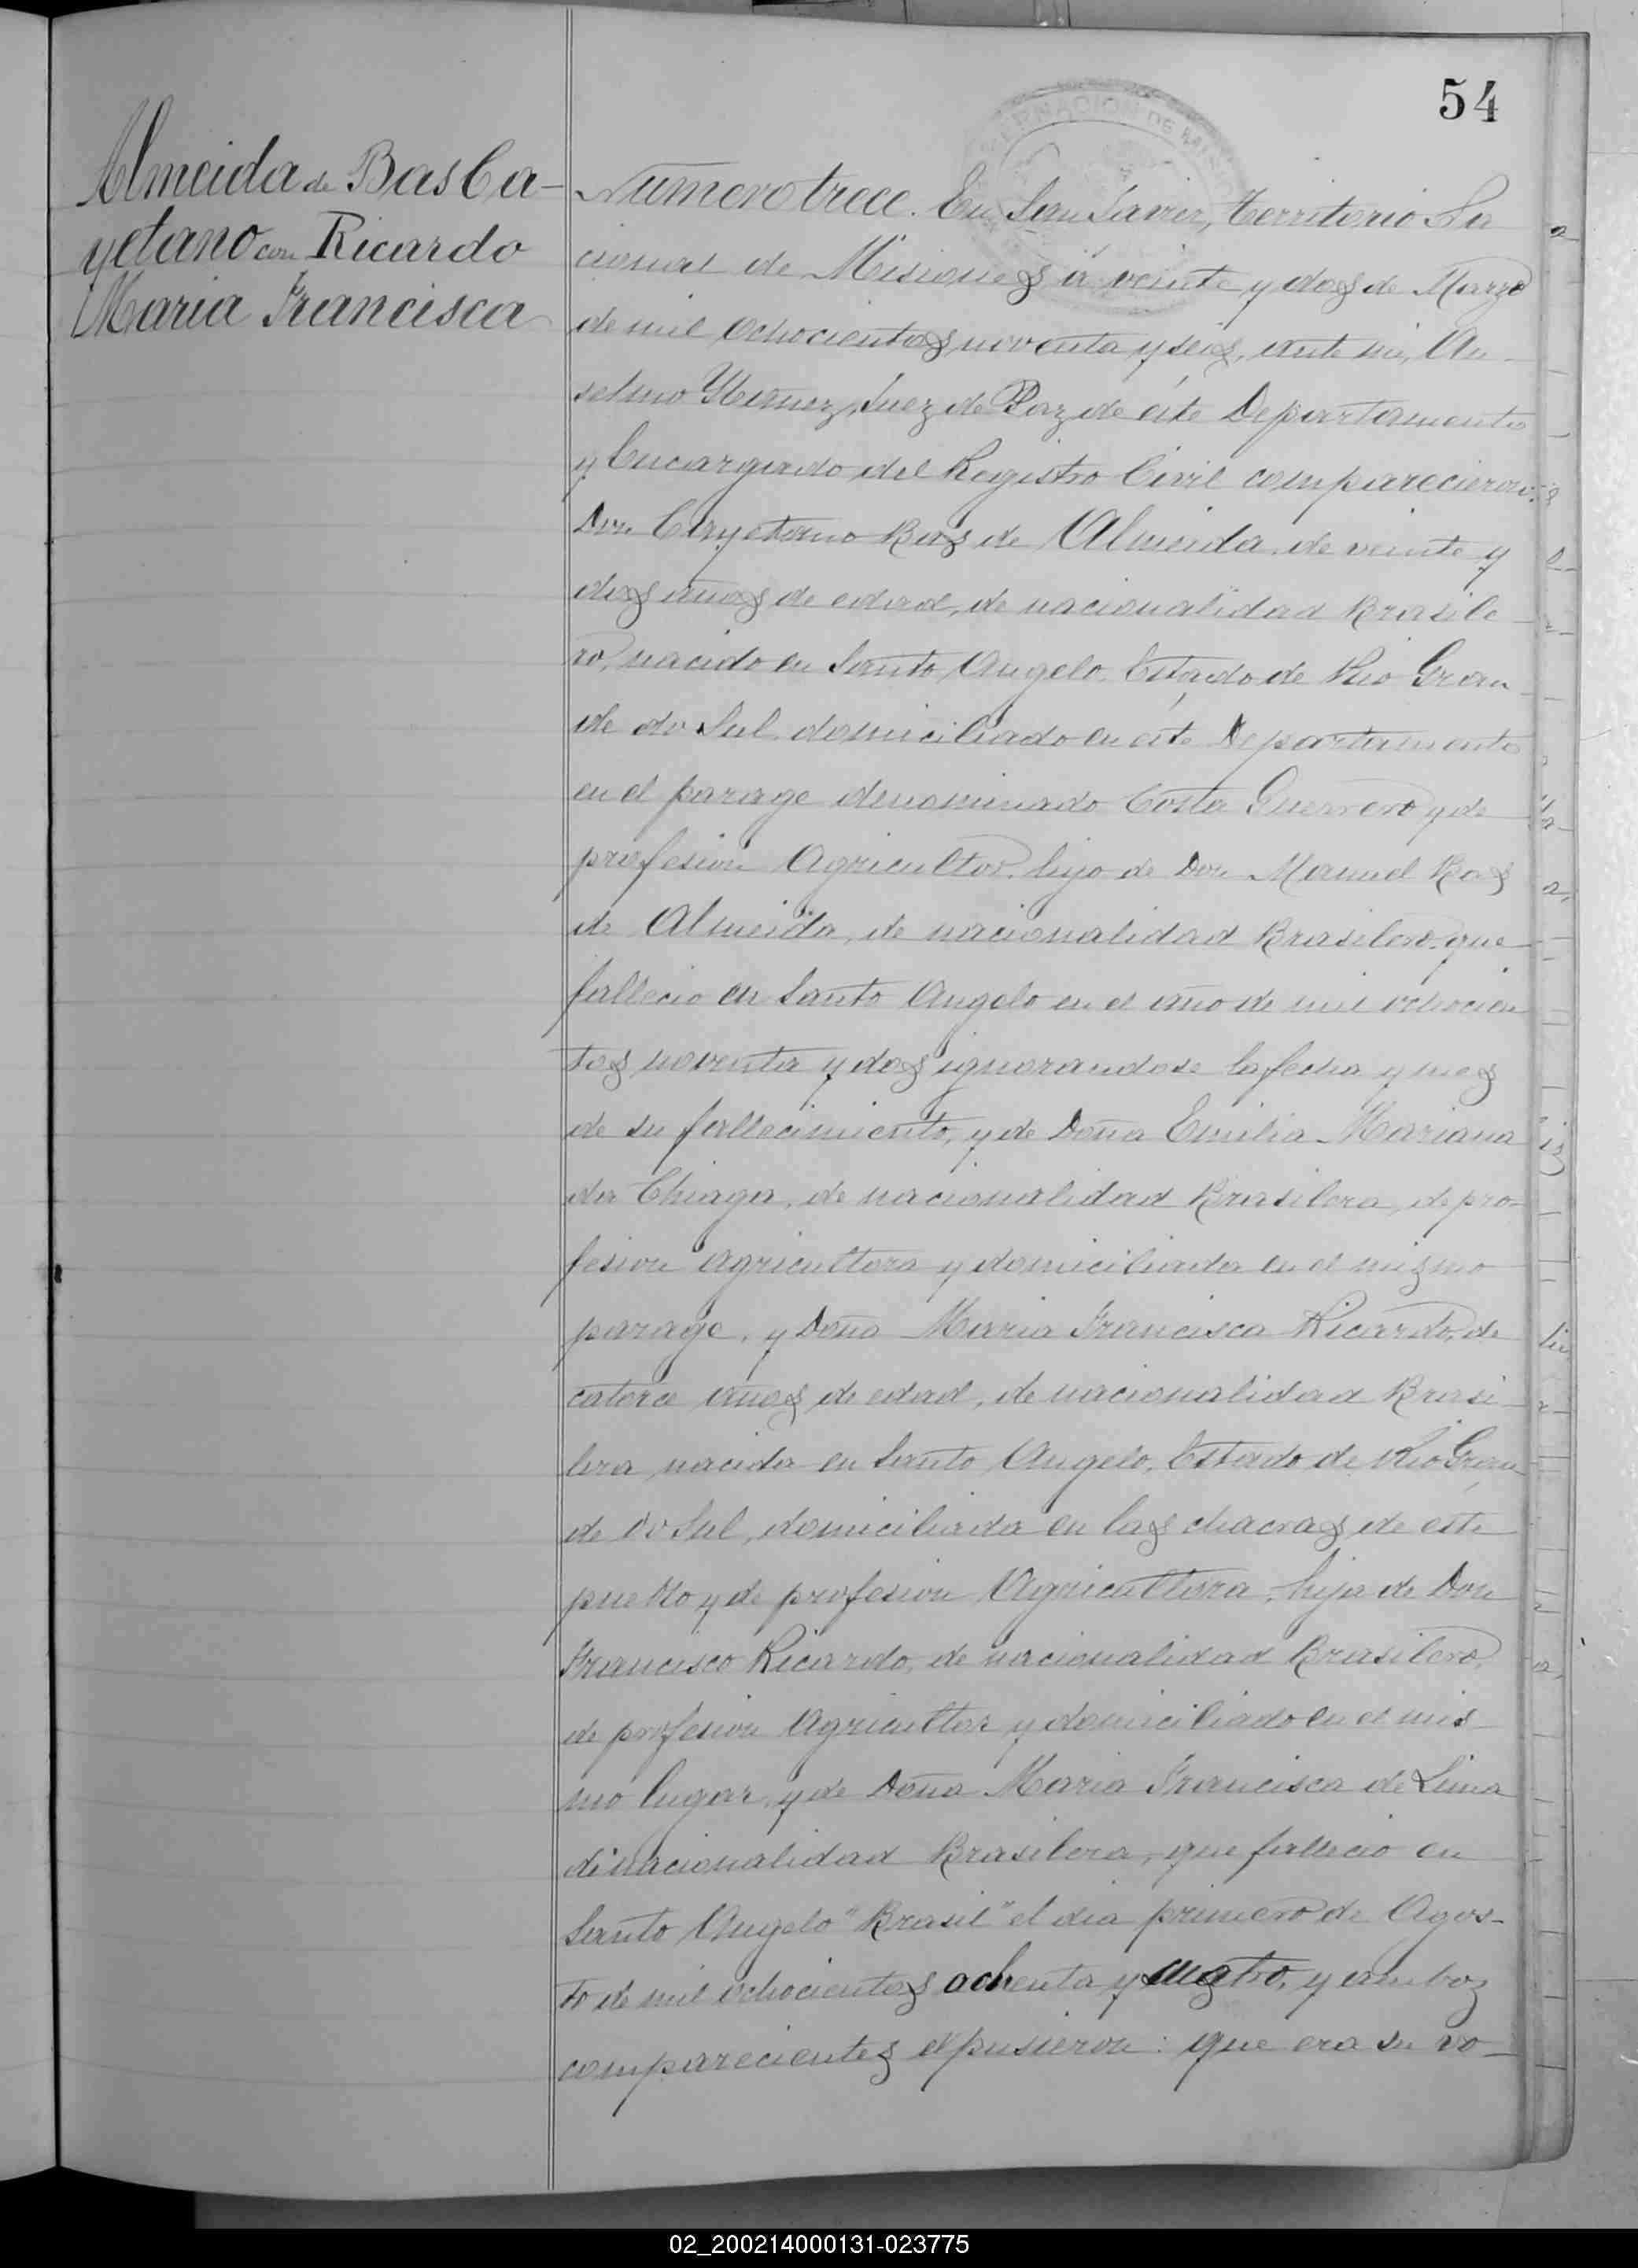 54
GOBERNACION DE MIS
Almeida de Bas Ca-
yetano con Ricardo
Maria Francisca
Numero trece. En San Javier, Territorio Na
cional de Misiones á veinte y dos de Marzo
de mil ochocientos noventa y seis, ante mi, An-
selmo Juez de Paz de éste Departamento
y Encargado del Registro Civil comparecieron:
Don Cayetano Bas de Almeida, de veinte y
dos años de edad, de nacionalidad Brasile
ro, nacido en Santo Angelo, Estado de Rio Gran
de do Sul, domiciliado en éste Departamento
en el parage denominado Costa Guerrero y de
profesion Agricultor, hijo de Don Manuel Bas
de Almeida, de nacionalidad Brasilero, que
fallecio en Santo Angelo en el año de mil ochocien
tos noventa y dos ignorandose la fecha y mes
de su fallecimiento, y de Doña Emilia Mariana
da Chiaga, de nacionalidad Brasilera, de pro-
fesion agricultora y domiciliada en el mismo
parage, y Doña Maria Francisca Ricardo, de
catorce años de edad, de nacionalidad Brasi-
lera, nacida en Santo Angelo, Estado de Rio Gran
de do Sul, domiciliada en las chacras de éste
pueblo y de profesion Agricultora, hija de Don
Francisco Ricardo, de nacionalidad Brasilero,
de profesion Agricultor y domiciliado en el mis-
mo lugar, y de Doña Maria Francisca de Lima
de nacionalidad Brasilera, que fallecio en
Santo Angelo "Brasil" el dia primero de Agos-
to de mil ochocientos ochenta y cuatro, y ambos
comparecientes expusieron: que era su vo-
02_200214000131-023775